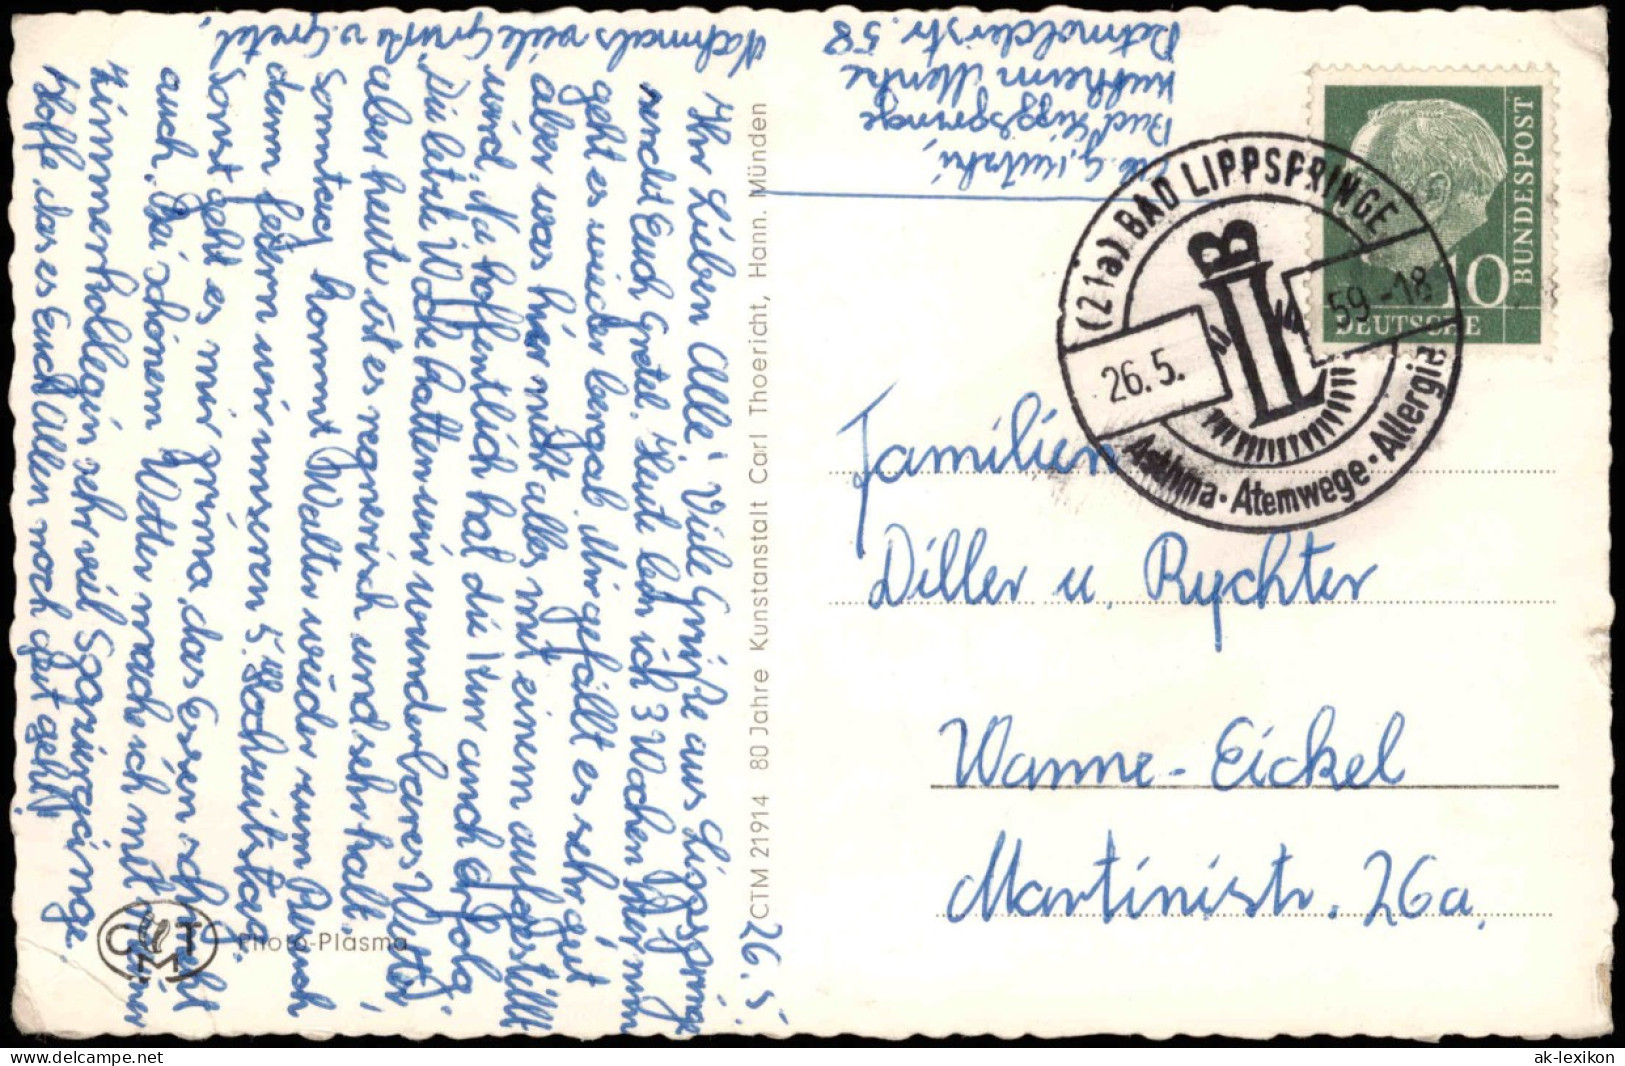 26.5.
Ihr Lieben Alle! Viele Grüße aus Lippspringe
sendet Euch Gretel. Heute bin ich 3 Wochen hier nun
geht es wieder bergab. Mir gefällt es sehr gut
aber was hier nicht alles mit einem aufgestellt
wird. Na hoffentlich hat die Kur auch Erfolg.
Die letzte Woche hatten wir wunderbares Wetter
aber heute ist es regnerisch und sehr kalt.
Sonntag kommt Walter wieder zum Besuch
dann feiern wir unseren 5. Hochzeitstag.
Sonst geht es mir prima, das Essen schmeckt
auch. Bei schönem Wetter mache ich mit einer
Zimmerkollegin sehr viel Spaziergänge.
Hoffe, das es Euch Allen noch gut geht!
Nochmals viele Grüße v. Gretel
Abs. G.
Bad Lippspringe
Kurheim
Detmolderstr. 58
CTM 21914 80 Jahre Kunstanstalt Carl Thoericht, Hann. Münden
CTM
Photo-Plasma
(21a) BAD LIPPSPRINGE
26.5. 59-18
Asthma · Atemwege · Allergie
DEUTSCHE
BUNDESPOST
10
Familien
Diller u. Rychter
Wanne-Eickel
Martinistr. 26a.
ak-lexikon.de
www.ansichtskarten-lexikon.de